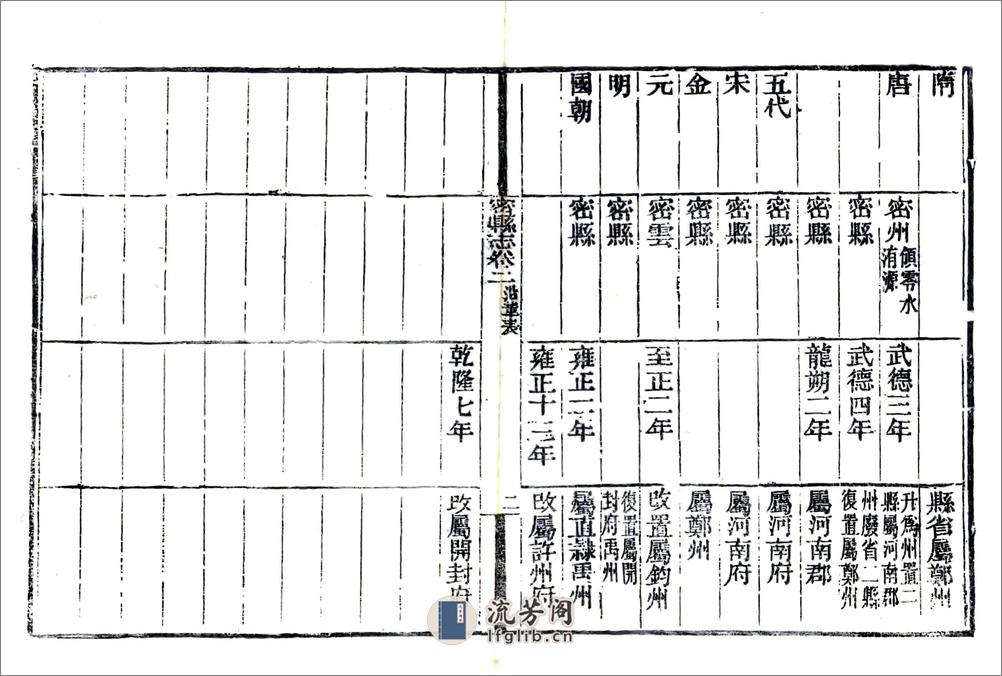 隋 縣省屬鄭州
唐 密州 領零水 洧源 武德三年 升爲州置二 縣屬河南郡
密縣 武德四年 州廢省二縣 復置屬鄭州
密縣 龍朔二年 屬河南郡
五代 密縣 屬河南府
宋 密縣 屬河南府
金 密縣 屬鄭州
元 密雲 至正二年 改置屬鈞州
明 密縣 復置屬開 封府禹州
國朝 密縣 雍正二年 屬直隸禹州
雍正十三年 改屬許州府
密縣志卷二 沿革表 二
乾隆七年 改屬開封府
流芳阁
lfglib.cn